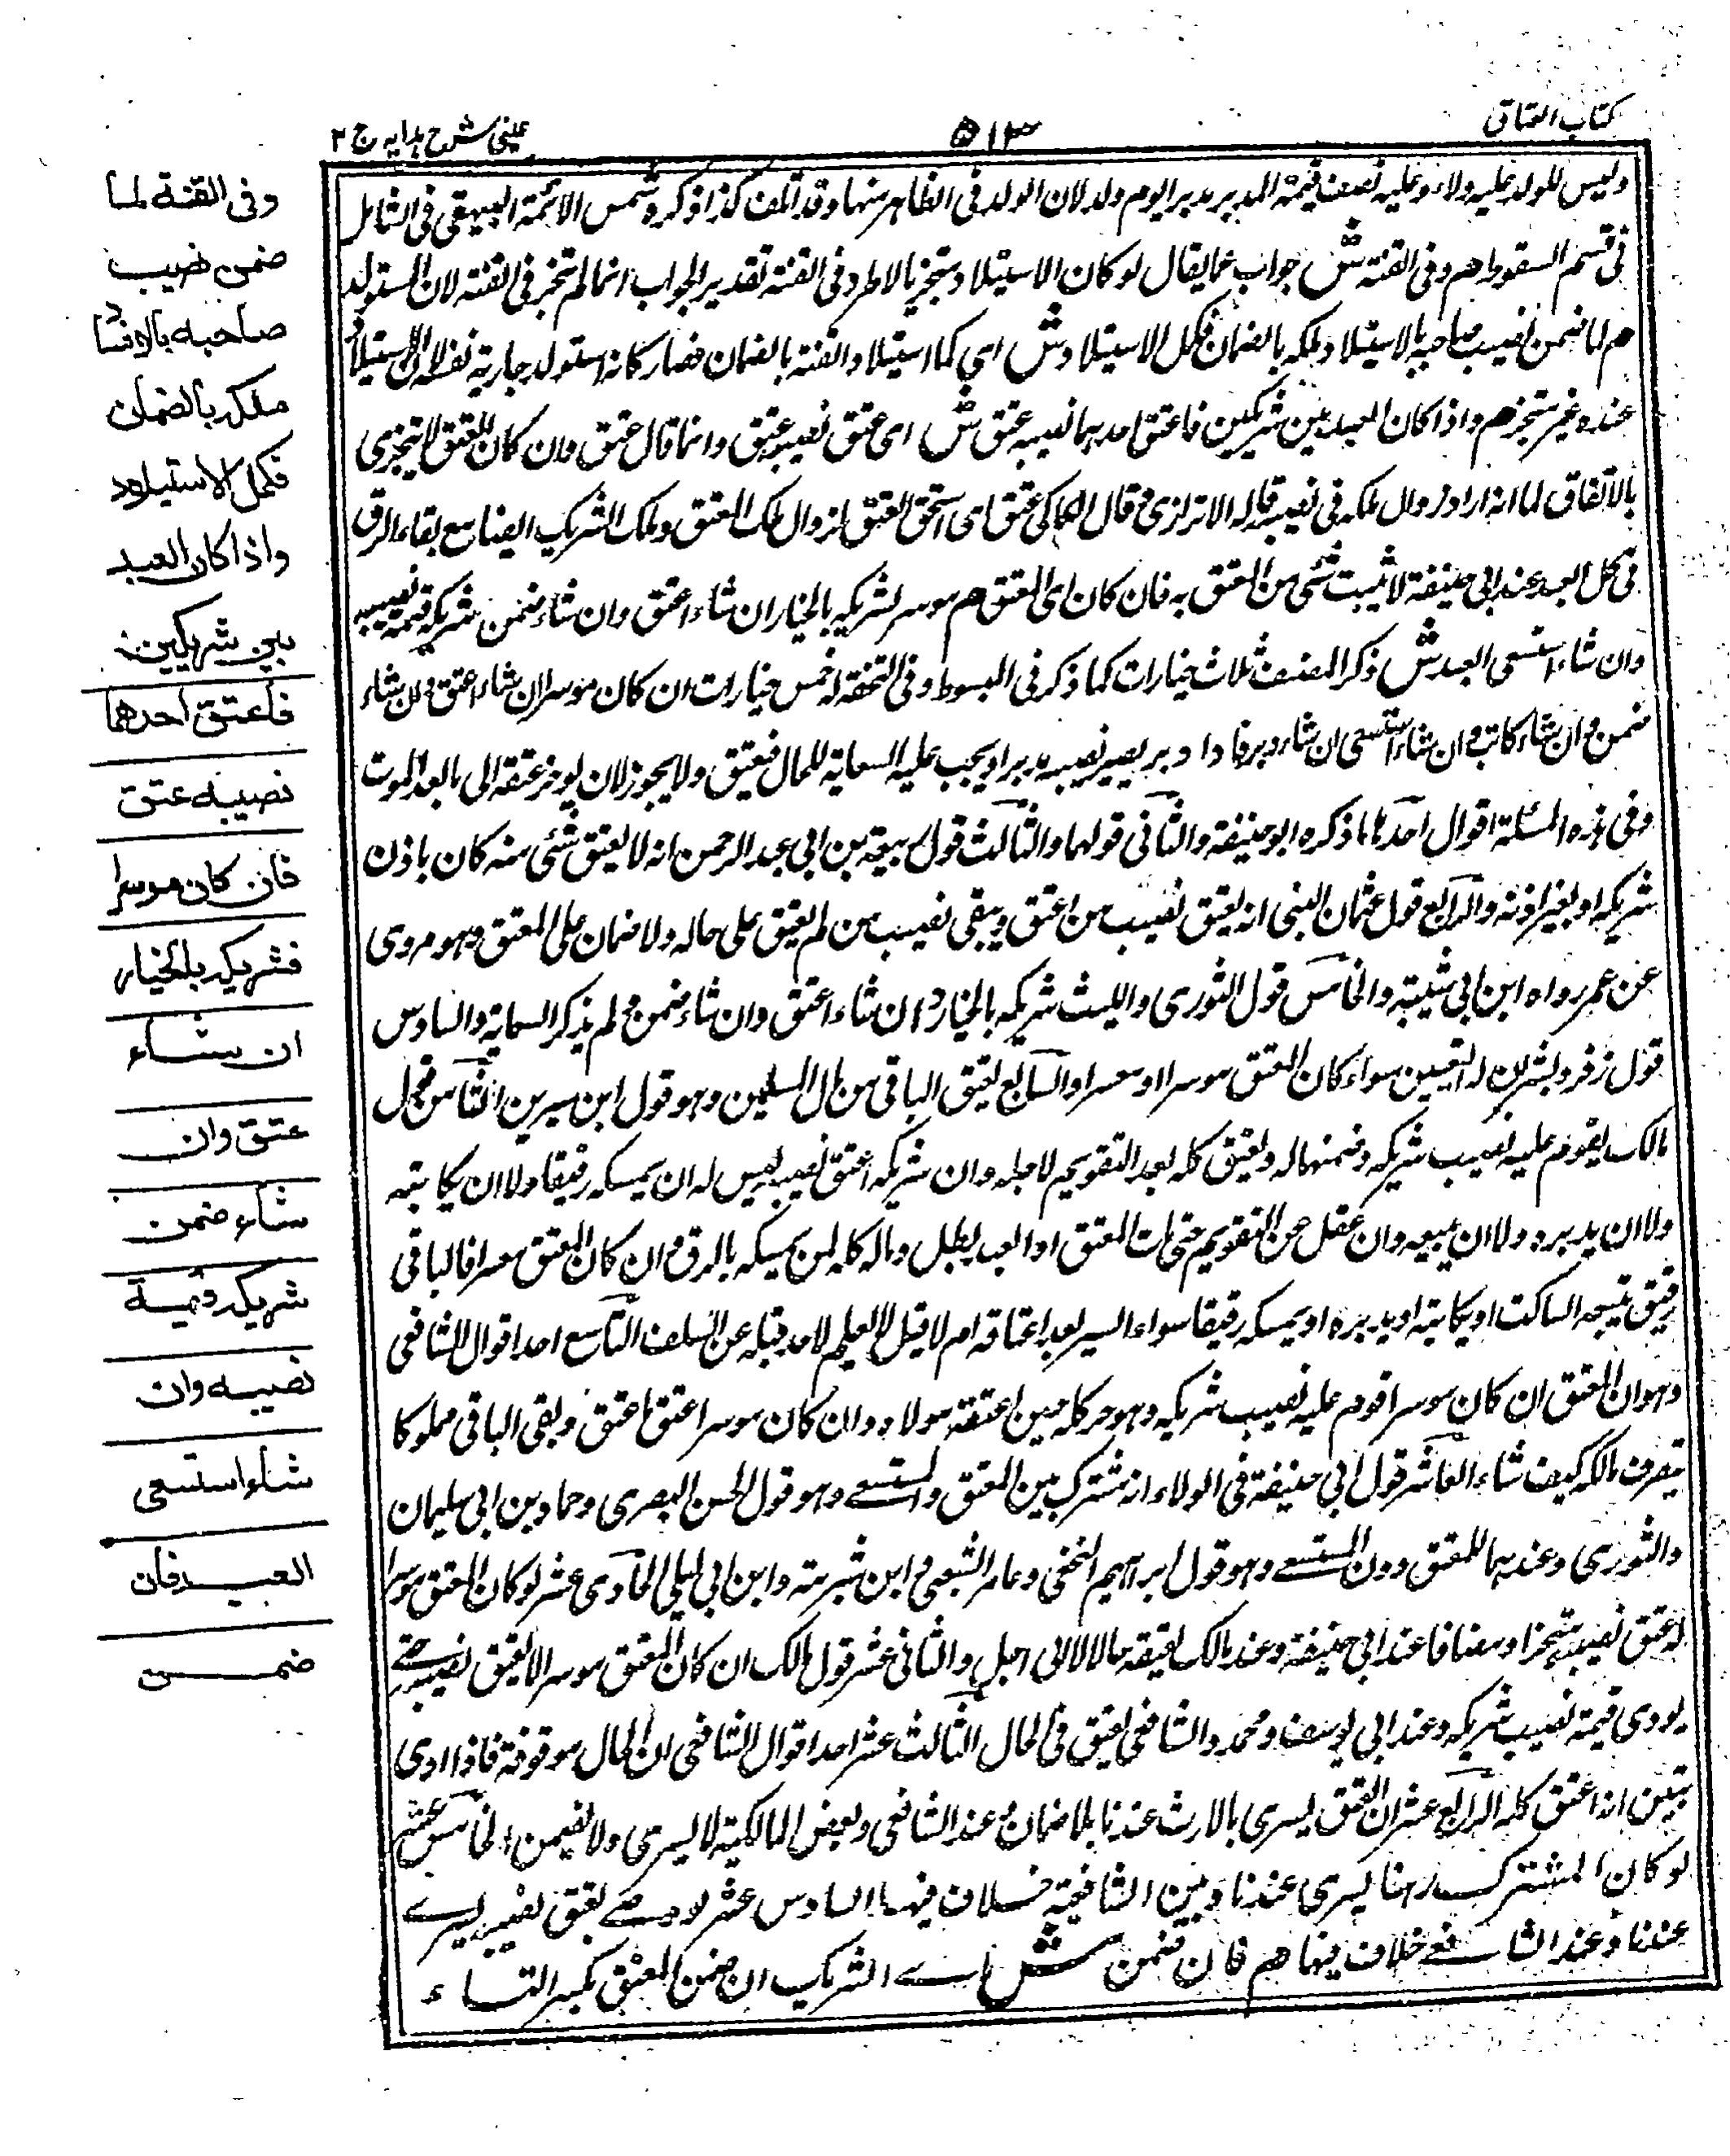 كتاب العتاق
٥١٣
عينى شرح هدايه ج ٢
وليس للولد عليه ولاء وعليه نصف قيمة المدبر مدبرا يوم ولد لان الولد فى الظاهر منها وقد اتلف كذا ذكره شمس الائمة البيهقى فى الشامل
فى قسم المسقوط هم وفى القنة ش جواب عما يقال لو كان الاستيلاد متجزيا لاطرد فى القنة تقدير الجواب انما لم يتجز فى القنة لان المستولد
هم لما ضمن نصيب صاحبه بالاستيلاد ملكه بالضمان فكمل الاستيلاد ش اى كما استيلاد القنة بالضمان فصار كانه استولد جارية نفسه لان الاستيلاد
عنده غير متجز هم واذا كان العبد بين شريكين فاعتق احدهما نصيبه عتق ش اى عتق نصيبه عتق وانما قال عتق وان كان العتق لا يتجزى
بالاتفاق لما انه اراد زوال ملكه فى نصيبه قاله الاترازى وقال الكاكى عتق اى استحق العتق لزوال ملك المعتق وملك الشريك ايضا مع بقاء الرق
فى كل العبد عند ابى حنيفة لا يثبت شئ من العتق به فان كان اى المعتق هم موسرا لشريكه بالخيار ان شاء اعتق وان شاء ضمن شريكه قيمة نصيبه
وان شاء استسعى العبد ش ذكر المصنف ثلاث خيارات كما ذكر فى المبسوط وفى التحفة له خمس خيارات ان كان موسرا ان شاء اعتق وان شاء
ضمن وان شاء كاتب وان شاء استسعى ان شاء دبر فاذا دبر يصير نصيبه مدبرا ويجب عليه السعاية للمال فيعتق ولا يجوز لان يؤخر عتقه الى بعد الموت
وفى هذه المسئلة اقوال احدها ما ذكره ابو حنيفة والثانى قولهما والثالث قول ربيعة بن ابى عبد الرحمن انه لا يعتق شئ منه كان باذن
شريكه او بغير اذنه والرابع قول عثمان البتى انه يعتق نصيب من اعتق ويبقى نصيب من لم يعتق على حاله ولا ضمان على المعتق وهو مروى
عن عمر رواه ابن ابى شيبة والخامس قول الثورى والليث شريكه بالخيار ان شاء اعتق وان شاء ضمن ولم يذكر السعاية والسادس
قول زفر وبشر له التضمين سواء كان المعتق موسرا او معسرا والسابع يعتق الباقى من مال المسلمين وهو قول ابن سيرين الثامن قول
مالك يقوم عليه نصيب شريكه وضمنها له ويعتق كله بعد التقويم لا قبله وان شريكه اعتق نصيبه ليس له ان يمسكه رقيقا ولا ان يكاتبه
ولا ان يدبره ولا ان يبيعه وان عقل عن التقويم حتى مات المعتق او العبد بطل وماله كله لمن يمسكه بالرق وان كان المعتق معسرا فالباقى
رقيق يبيعه الساكت او يكاتبه او يدبره او يمسكه رقيقا سواء ايسر بعد اعتاقه ام لا قيل لا يعلم لاحد قبله عن السلف التاسع احد اقوال الشافعى
وهو ان المعتق ان كان موسرا قوم عليه نصيب شريكه وهو حر كله حين اعتقه مولاه وان كان موسرا عتق ما عتق وبقى الباقى مملوكا
يتصرف مالكه كيف شاء العاشر قول ابى حنيفة فى الولاء انه مشترك بين المعتق والمستسعى وهو قول الحسن البصرى وحماد بن ابى سليمان
والثورى وعندهما للمعتق دون المستسعى وهو قول ابراهيم النخعى وعامر الشعبى وابن شبرمة وابن ابى ليلى الحادى عشر لو كان المعتق موسرا
له عتق نصيبه متجزا ومضافا عند ابى حنيفة وعند مالك يعتقه حالا لا الى اجل والثانى عشر قول مالك ان كان المعتق موسرا لا يعتق نصيبه حتى
يودى قيمة نصيب شريكه وعند ابى يوسف ومحمد والشافعى يعتق فى الحال الثالث عشر احد اقوال الشافعى ان الحال موقوفة فاذا ادى
تبين انه اعتق كله الرابع عشر ان العتق يسرى بالارث عندنا بلا ضمان وعند الشافعى وبعض المالكية لا يسرى ولا يضمن الخامس عشر
لو كان المشترك رهنا يسرى عندنا وبين الشافعية خلاف فيها السادس عشر لو وصى بعتق نصيبه يسرى
عندنا وعند الشافعى خلاف فيها هم فان ضمن ش اى الشريك ان ضمن المعتق بكسر التاء
وفى القنة لما
ضمن نصيب
صاحبه بالافساد
ملكه بالضمان
فكمل الاستيلاد
واذا كان العبد
بين شريكين
فاعتق احدهما
نصيبه عتق
فان كان موسرا
فشريكه بالخيار
ان شاء
عتق وان
شاء ضمن
شريكه قيمة
نصيبه وان
شاء استسعى
العبد فان
ضمن